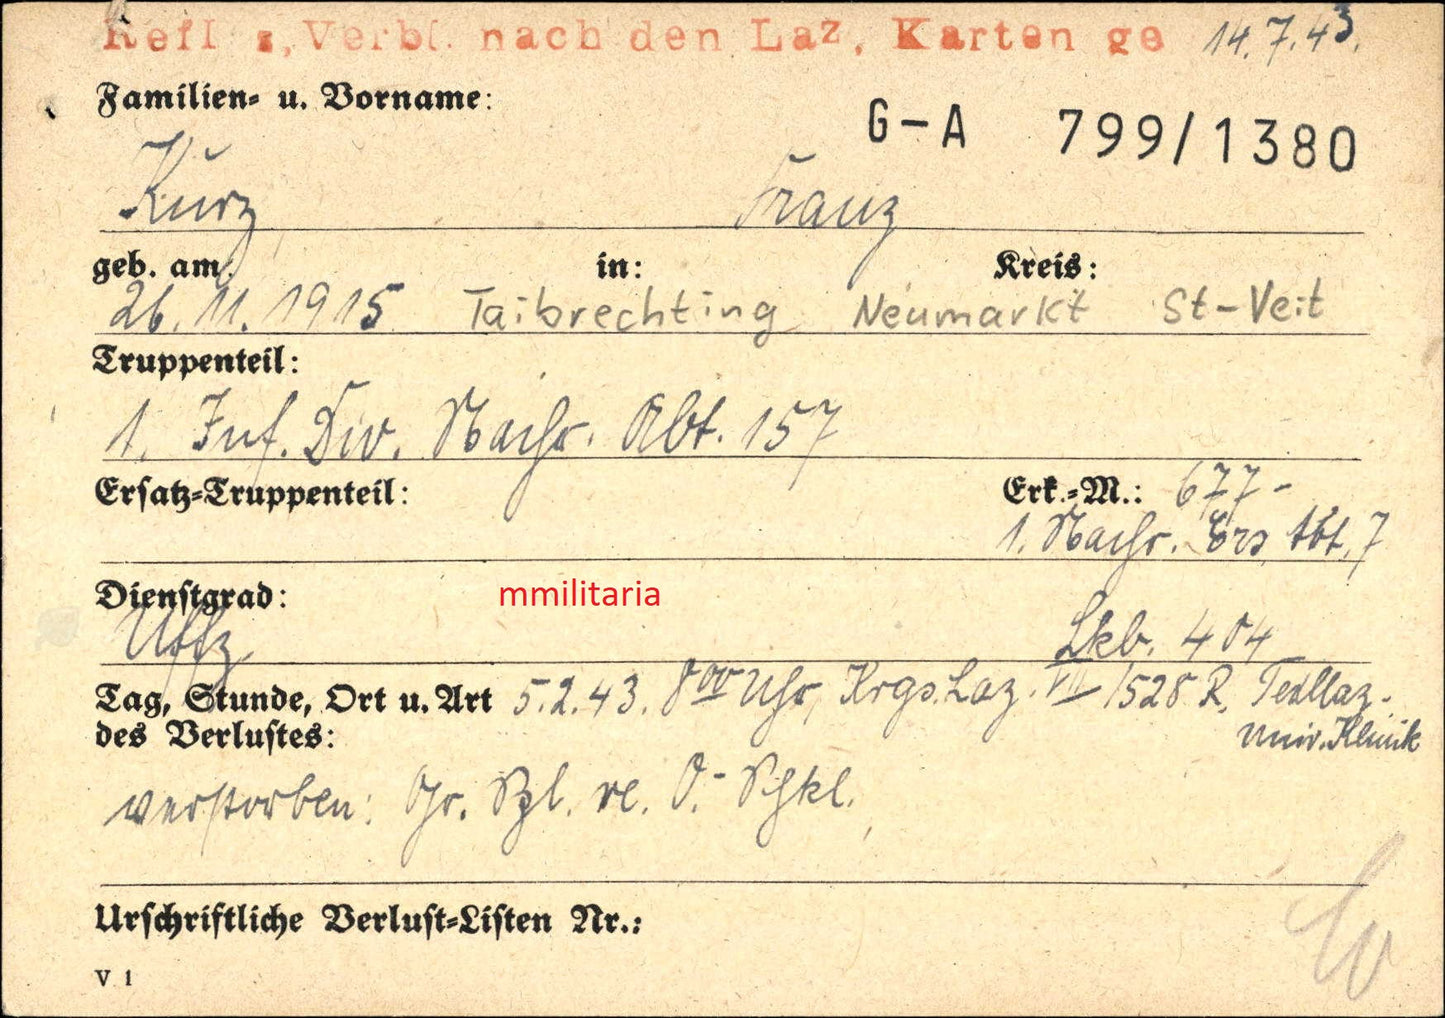 Refl u. Verbl. nach den Laz. Karten ge 14.7.43.
Familien- u. Vorname:
G-A 799/1380
Kurz Franz
geb. am: in: Kreis:
26.11.1915 Taibrechting Neumarkt St-Veit
Truppenteil:
1. Inf. Div. Nachr. Abt. 157
Ersatz-Truppenteil: Erk.-M.: 677-
1. Nachr. Ers. Abt. 7
Dienstgrad:
mmilitaria
Uffz. Lkb. 404
Tag, Stunde, Ort u. Art 5.2.43. 8 00 Uhr, Krgs. Laz. VII /528 R. Teillaz.
des Verlustes: Univ. Klinik
verstorben: Gr. Spl. re. O.-Schkl.
Urschriftliche Verlust-Listen Nr.:
V 1